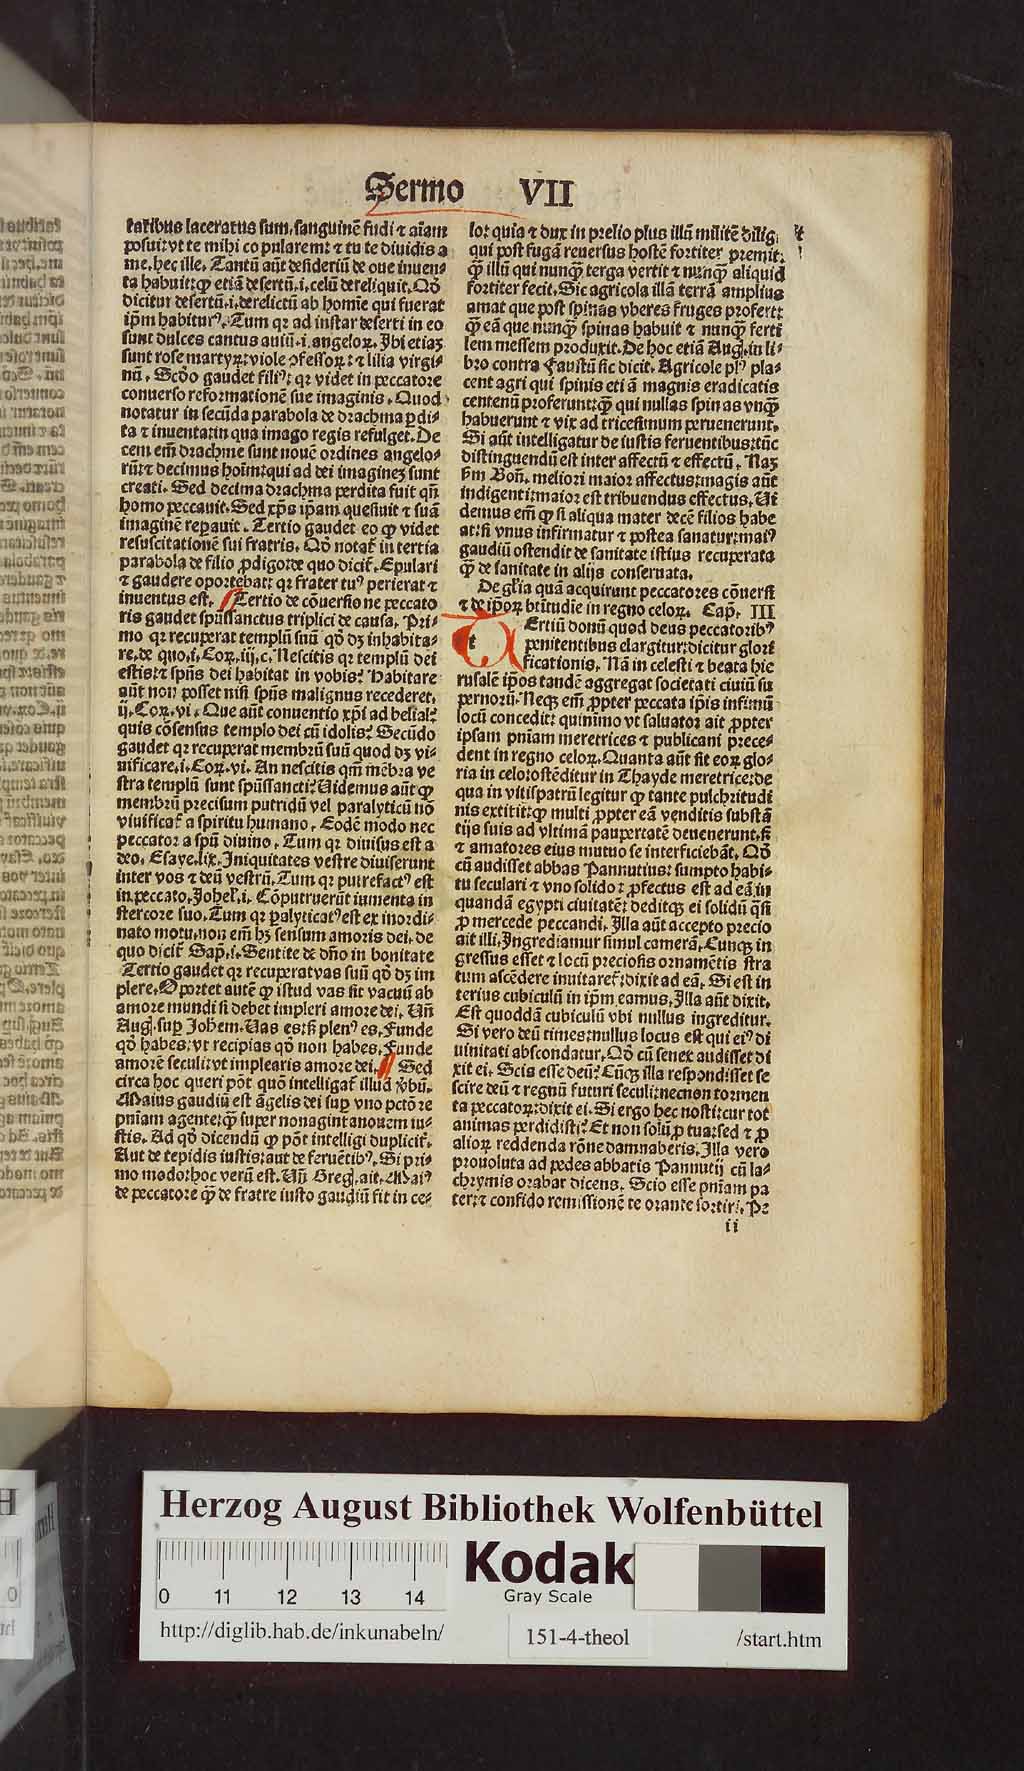 Sermo VII
tatibus laceratus sum, sanguinē fudi ⁊ aīam
posui: vt te mihi copularem: ⁊ tu te diuidis a
me. hec ille. Tantū aūt desideriū de oue inuen-
ta habuit: ꝙ etiā desertū .i. celū dereliquit. Qd̄
dicitur desertū .i. derelictū ab homīe qui fuerat
ip̄m habiturꝰ. Tum qꝛ ad instar deserti in eo
sunt dulces cantus auiū .i. angeloꝝ. Jbi etiaꝫ
sunt rose martyꝝ: viole ꝯfessoꝝ: ⁊ lilia virgi-
nū. Scd̄o gaudet filiꝰ: qꝛ videt in peccatore
conuerso reformationē sue imaginis. Quod
notatur in secūda parabola de drachma ꝑdi-
ta ⁊ inuenta: in qua imago regis refulget. De
cem em̄ drachme sunt nouē ordines angelo-
rū: ⁊ decimus hoīm: qui ad dei imagineꝫ sunt
creati. Sed decima drachma perdita fuit qn̄
homo peccauit. Sed xp̄s ip̄am quesiuit ⁊ suā
imaginē reꝑauit. Tertio gaudet eo ꝙ videt
resuscitationē sui fratris. Qd̄ notat̄ in tertia
parabola de filio ꝓdigo: de quo dicit̄. Epulari
⁊ gaudere oportebat: qꝛ frater tuꝰ perierat ⁊
inuentus est. Tertio de cōuersione peccato
ris gaudet spūssanctus triplici de causa. Pri-
mo qꝛ recuperat templū suū qd̄ dꝫ inhabita-
re. de quo .i. Coꝝ. iij. c. Nescitis qꝛ templū dei
estis: ⁊ spūs dei habitat in vobis? Habitare
aūt non posset nisi spūs malignus recederet.
ij. Coꝝ. vi. Que aūt conuentio xp̄i ad belial?
quis cōsensus templo dei cū idolis? Secūdo
gaudet qꝛ recuperat membrū suū quod dꝫ vi-
uificare. i. Coꝝ. vi. An nescitis qm̄ mēbra ve
stra templū sunt spūssancti? Uidemus aūt ꝙ
membrū precisum putridū vel paralyticū nō
viuificat̄ a spiritu humano. Eodē modo nec
peccator a spū diuino. Tum qꝛ diuisus est a
deo. Esaye. lix. Jniquitates vestre diuiserunt
inter vos ⁊ deū vestrū. Tum qꝛ putrefactꝰ est
in peccato. Johel̄. i. Cōputruerūt iumenta in
stercore suo. Tum qꝛ ꝑalyticatꝰ est ex inordi-
nato motu. non em̄ hꝫ sensum amoris dei. de
quo dicit̄ Sap̄. i. Sentite de dn̄o in bonitate
Tertio gaudet qꝛ recuperat vas suū qd̄ dꝫ im
plere. Oportet autē ꝙ istud vas sit vacuū ab
amore mundi si debet impleri amore dei. Un̄
Auḡ. suꝑ Johēm. Uas es: s̄ꝫ plenꝰ es. Funde
qd̄ habes: vt recipias qd̄ non habes. Funde
amorē seculi: vt implearis amore dei. Sed
circa hoc queri pōt quō intelligat̄ illud v̄bū.
Maius gaudiū est āgelis dei suꝑ vno pctōre
pn̄iam agente: ꝙ̄ super nonagintanouem iu-
stis. Ad qd̄ dicendū ꝙ pōt intelligi duplicit̄.
Aut de tepidis iustis: aut de feruētibꝰ. Si pri-
mo modo: hoc verū est. Un̄ Greḡ. ait. Maiꝰ
de peccatore ꝙ̄ de fratre iusto gaudiū fit in ce-
lo: quia ⁊ dux in prelio plus illū militē dilig
qui post fugā reuersus hostē fortiter premit:
ꝙ̄ illū qui nunꝙ̄ terga vertit ⁊ nunꝙ̄ aliquid
fortiter fecit. Sic agricola illā terrā amplius
amat que post spinas vberes fruges profert:
ꝙ̄ eā que nunꝙ̄ spinas habuit ⁊ nunꝙ̄ ferti
lem messem produxit. De hoc etiā Auḡ. in li-
bro contra Faustū sic dicit. Agricole plꝰ pla-
cent agri qui spinis etiā magnis eradicatis
centenū proferunt: ꝙ̄ qui nullas spinas vnꝙ̄
habuerunt ⁊ vix ad tricesimum peruenerunt.
Si aūt intelligatur de iustis feruentibus: tūc
distinguendū est inter affectū ⁊ effectū. Naꝫ
fm̄ Bon̄. meliori maior affectus: magis aūt
indigenti: maior est tribuendus effectus. Ui
demus em̄ ꝙ si aliqua mater decē filios habe
at: si vnus infirmatur ⁊ postea sanatur: maiꝰ
gaudiū ostendit de sanitate istius recuperata
ꝙ̄ de sanitate in alijs conseruata.
De gl̄ia quā acquirunt peccatores cōuersi
⁊ de ip̄oꝝ btītudine in regno celoꝝ. Cap̄. III
Ertiū donū quod deus peccatoribꝰ
penitentibus elargitur: dicitur glori
ficationis. Nā in celesti ⁊ beata hie
rusalē ip̄os tandē aggregat societati ciuiū su
pernorū. Neqꝫ em̄ ꝓpter peccata ip̄is infimū
locū concedit: quinimo vt saluator ait ꝓpter
ipsam pn̄iam meretrices ⁊ publicani prece-
dent in regno celoꝝ. Quanta aūt sit eoꝝ glo-
ria in celo: ostēditur in Thayde meretrice: de
qua in vitispatrū legitur ꝙ tante pulchritudi
nis extitit: ꝙ multi ꝓpter eā venditis substā
tijs suis ad vltimā paupertatē deuenerunt. s̄ꝫ
⁊ amatores eius mutuo se interficiebāt. Qd̄
cū audisset abbas Pannutius: sumpto habi-
tu seculari ⁊ vno solido: ꝓfectus est ad eā in
quandā egypti ciuitatē: deditqꝫ ei solidū q̄si
ꝓ mercede peccandi. Jlla aūt accepto precio
ait illi. Jngrediamur simul camerā. Cunqꝫ in
gressus esset ⁊ locū preciosis ornamētis stra
tum ascēdere inuitaret̄: dixit ad eā. Si est in
terius cubiculū in ip̄m eamus. Jlla aūt dixit.
Est quoddā cubiculū vbi nullus ingreditur.
Si vero deū times: nullus locus est qui eiꝰ di
uinitati abscondatur. Qd̄ cū senex audisset di
xit ei. Scis esse deū? Cūqꝫ illa respondisset se
scire deū ⁊ regnū futuri seculi: necnon tormen
ta peccatoꝝ: dixit ei. Si ergo hec nosti: cur tot
animas perdidisti? Et non solū ꝓ tua: sed ⁊ ꝓ
alioꝝ reddenda rōne damnaberis. Jlla vero
prouoluta ad pedes abbatis Pannutij cū la-
chrymis orabat dicens. Scio esse pn̄iam pa
ter: ⁊ confido remissionē te orante sortiri. Pꝛ
ii
Herzog August Bibliothek Wolfenbüttel
Kodak
Gray Scale
0 11 12 13 14
http://diglib.hab.de/inkunabeln/ 151-4-theol /start.htm